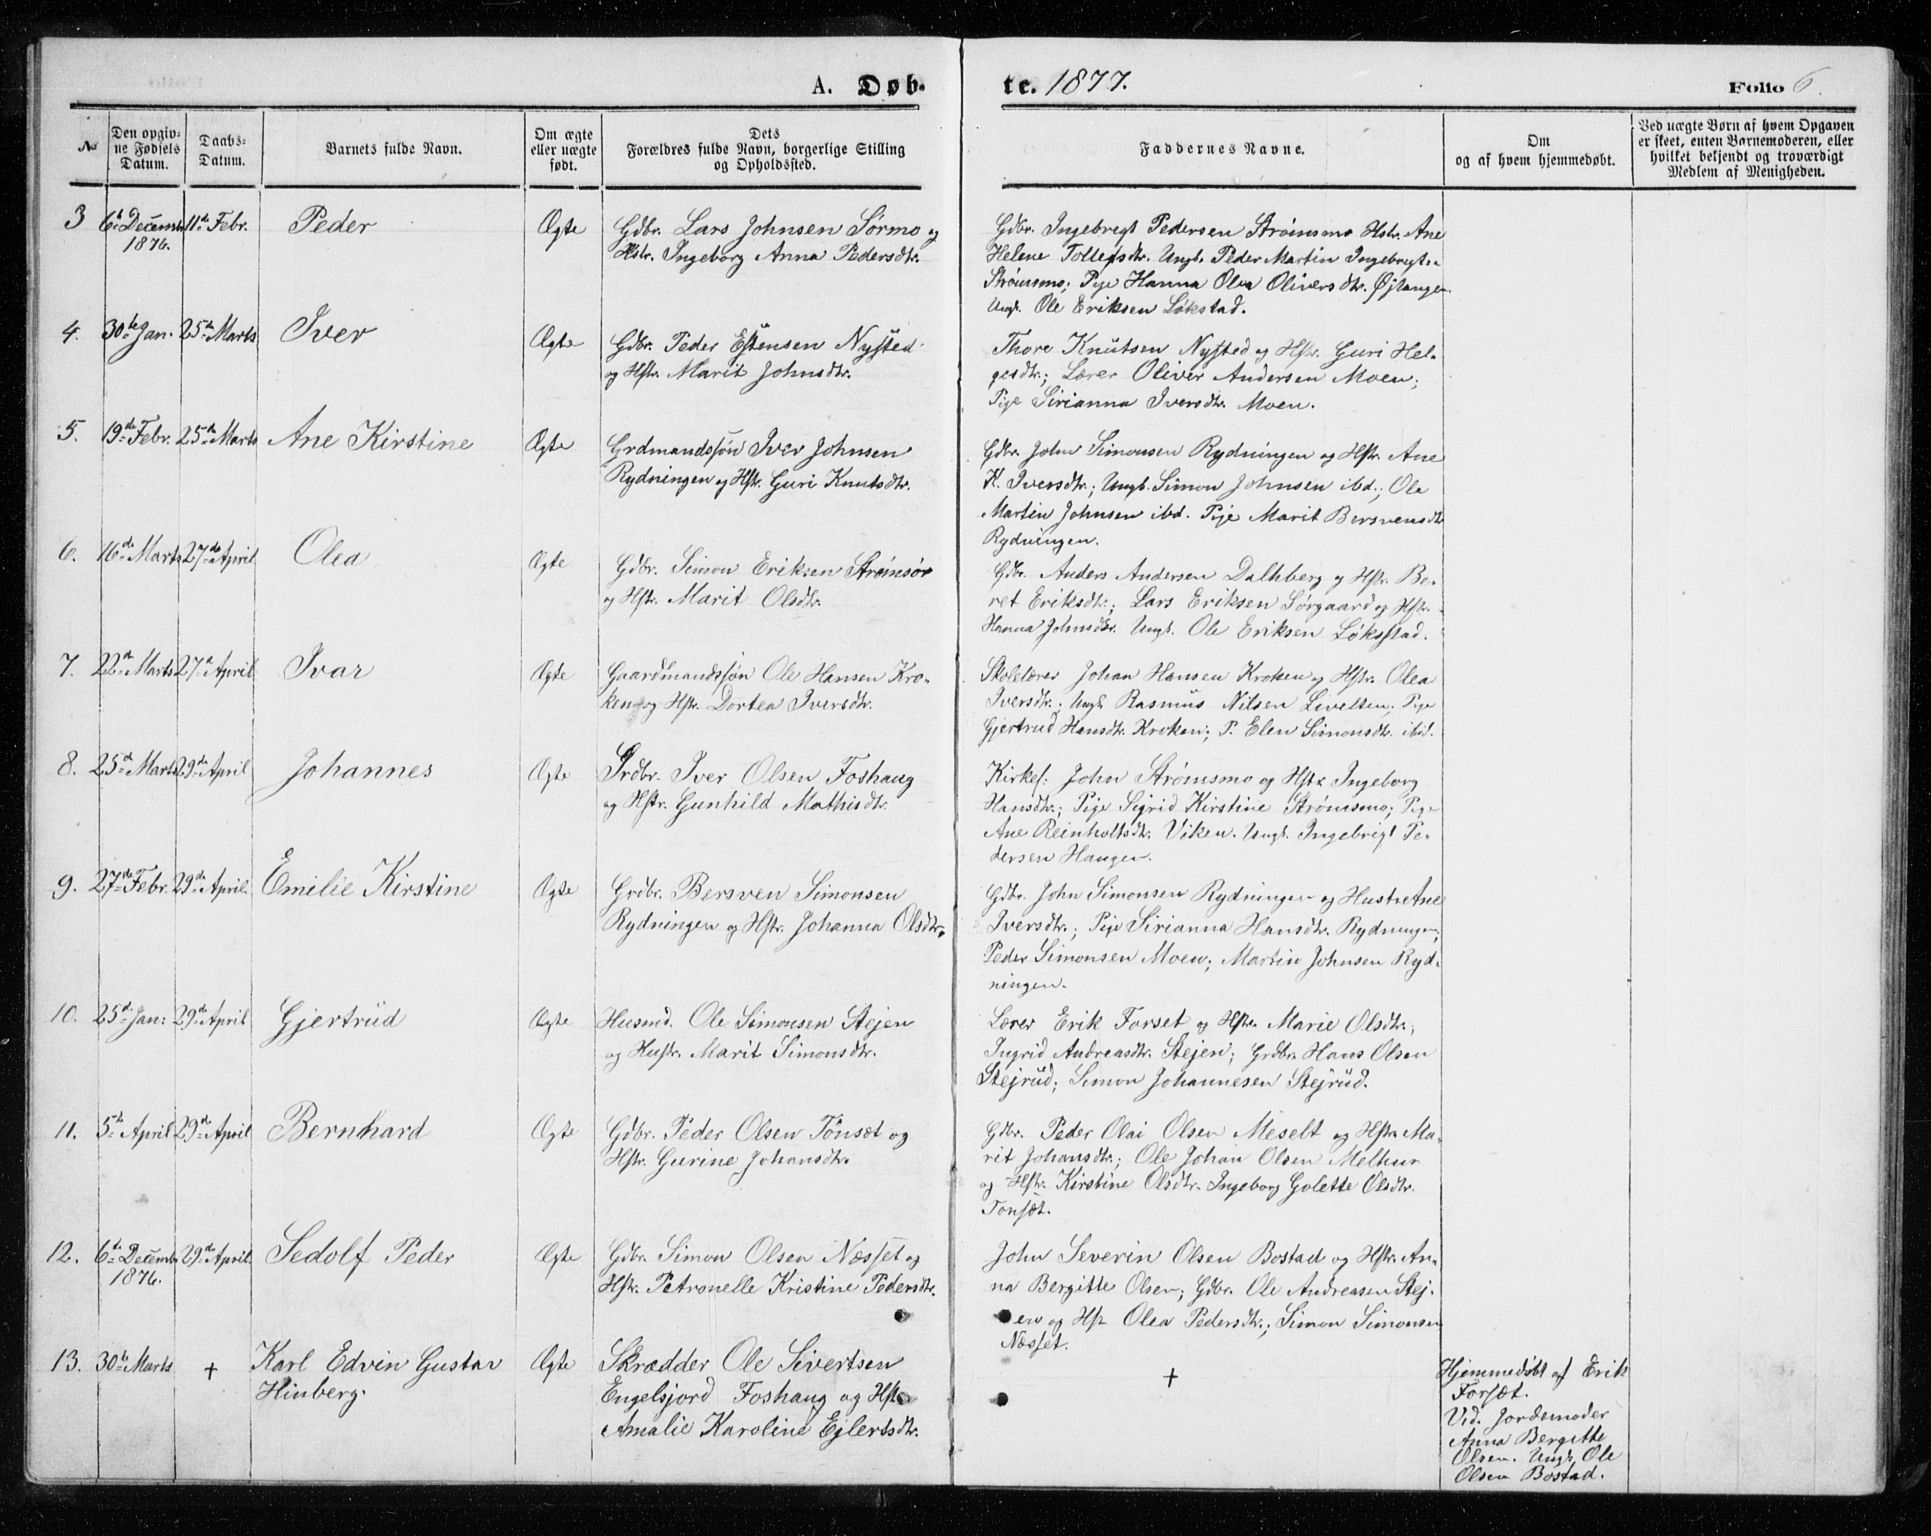 A. Døb-
te. 1877.
Folio 6.
No
Den opgiv-
ne Fødsels
Datum.
Daabs-
Datum.
Barnets fulde Navn.
Om ægte
eller uægte
født.
Dets
Forældres fulde Navn, borgerlige Stilling
og Opholdssted.
Faddernes Navne.
Om
og af hvem hjemmedøbt.
Ved uægte Børn af hvem Opgaven
er skeet, enten Barnemoderen, eller
hvilket bekjendt og troværdigt
Medlem af Menigheden.
3 6te Decemb. 11te Febr. Peder Ægte Gdbr. Lars Johnsen Sørmo og
1876. Hstr. Ingeborg Anna Pedersdtr.
Gdbr. Ingebrigt Pedersen Strømsmo Hstr. Ane
Helene Tollefsdtr. Ungk. Peder Martin Ingebrigts.
Strømsmo; Pige Hanna Olea Oliversdtr.
Ungk. Ole Eriksen Løkstad.
4. 30te Jan. 25de Marts Iver Ægte Gdbr. Peder Estensen Nysted
og Hstr. Marit Johnsdtr.
Thore Knutsen Nysted og Hstr. Guri Hel-
gesdtr.; Lærer Oliver Andersen Moen;
Pige Sirianna Iversdtr. Moen.
5. 19de Febr. 25de Marts Ane Kirstine Ægte Grdmandssøn Iver Johnsen
Rydningen og Hstr. Guri Knutsdtr.
Gdbr. John Simonsen Rydningen og Hstr. Ane
K. Iversdtr.; Ungk. Simon Johnsen ibd.; Ole
Martin Johnsen ibd. Pige Marit Bersvensdtr.
Rydningen.
6. 16de Marts 27de April Olea Ægte Gdbr. Simon Eriksen Strømsør
og Hstr. Marit Olsdtr.
Gdbr. Anders Andersen Dalhberg og Hstr. Be-
ret Eriksdtr.; Lars Eriksen Sørgaard og Hstr.
Hanna Johnsdtr. Ungk. Ole Eriksen Løksstad.
7. 22de Marts 27de April Ivar Ægte Gaardmandssøn Ole Hansen Kro-
ken og Hstr. Dortea Iversdtr.
Skolelærer Johan Hansen Kroken og Hstr. Olea
Iversdtr.; Ungk. Rasmus Nilsen Livelten; Pige
Gjertrud Hansdtr. Kroken; P. Elen Simonsdtr. ibid.
8. 25de Marts 29de April Johannes Ægte Grdbr. Iver Olsen Foshaug
og Hstr. Gunhild Mathisdtr.
Kirkes. John Strømsmo og Hstr. Ingeborg
Hansdtr.; Pige Sigrid Kirstine Strømsmo; Pige
Ane Reinholtsdtr. Viken. Ungk. Ingebrigt Pe-
dersen Haugen.
9. 27de Febr. 29de April. Emilie Kirstine Ægte Grdbr. Bersven Simonsen
Rydningen og Hstr. Johanna Olsdtr.
Gdbr. John Simonsen Rydningen og Hustr. Ane
Iversdtr.; Pige Sirianna Hansdtr. Rydningen;
Peder Simonsen Moen; Martin Johnsen Ryd-
ningen.
10. 25de Jan: 29de April Gjertrud Ægte Husmd. Ole Simonsen Stejen
og Hustr. Marit Simonsdtr.
Lærer Erik Forset og Hstr. Marie Olsdtr.;
Ingrid Andreasdtr. Stejen; Grdbr. Hans Olsen
Stejrud; Simon Johannesen Stejrud.
11. 5te April 29de April Bernhard Ægte Gdbr. Peder Olsen Tønsæt og
Hstr. Gurine Johansdtr.
Gdbr. Peder Olai Olsen Meselt og Hstr. Ma-
rit Johansdtr.; Ole Johan Olsen Melhur
og Hstr. Kirstine Olsdtr. Ingeborg Golette Olsdtr.
Tønsæt.
12. 6te Decemb. 29de April. Sedolf Peder Ægte Gdbr. Simon Olsen Næsset og
1876. Hstr. Petronelle Kristine Pedersdtr.
John Severin Olsen Bostad og Hstr. An-
na Bergitte Olsen; Gdbr. Ole Andreasen Stej-
en og Hstr. Olea Pedersdtr.; Simon Simonsen
Næsset.
13. 30te Marts + Karl Edvin Gustav Ægte Skrædder Ole Sivertsen
Hinberg. Engelsjord Foshaug og Hstr.
Amalie Karoline Ejlertsdtr.
+
Hjemmedøbt af Erik
Forsæt.
Vid. Jordemoder
Anna Bergitte
Olsen. Ungk. Ole
Olsen Bostad.